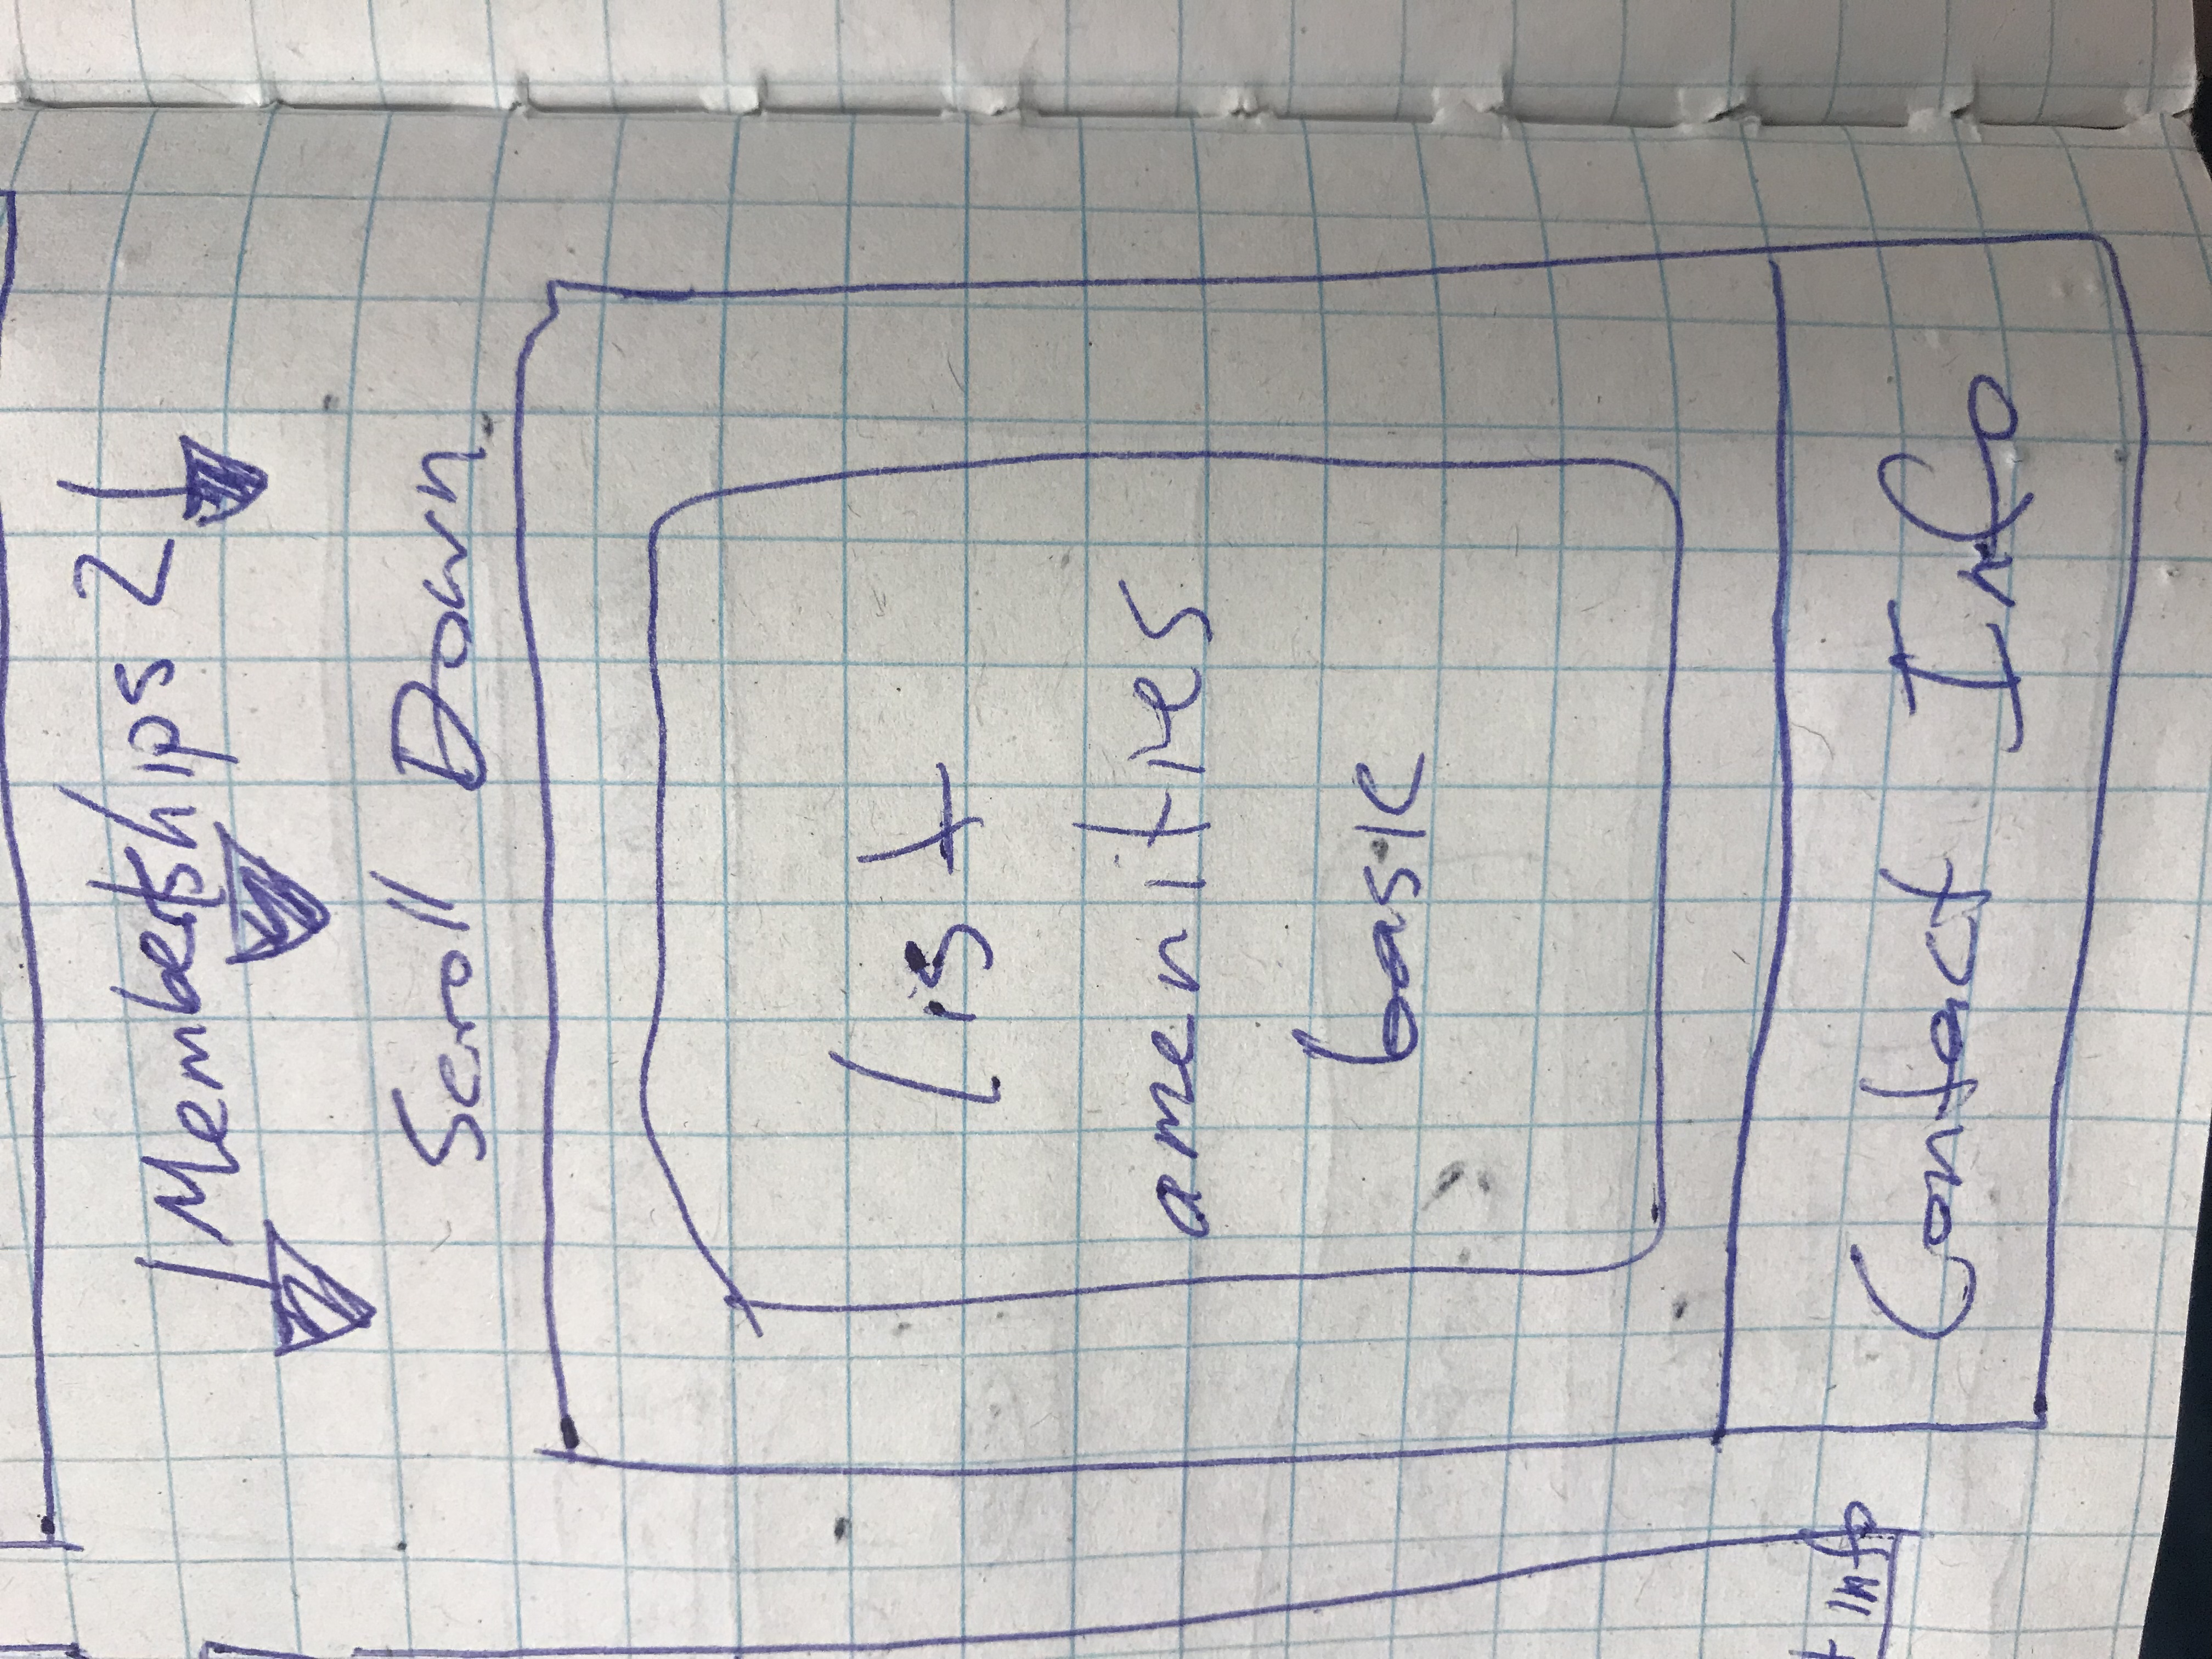 Memberships 2
Scroll Down
list
amenities
basic
info
Contact Info